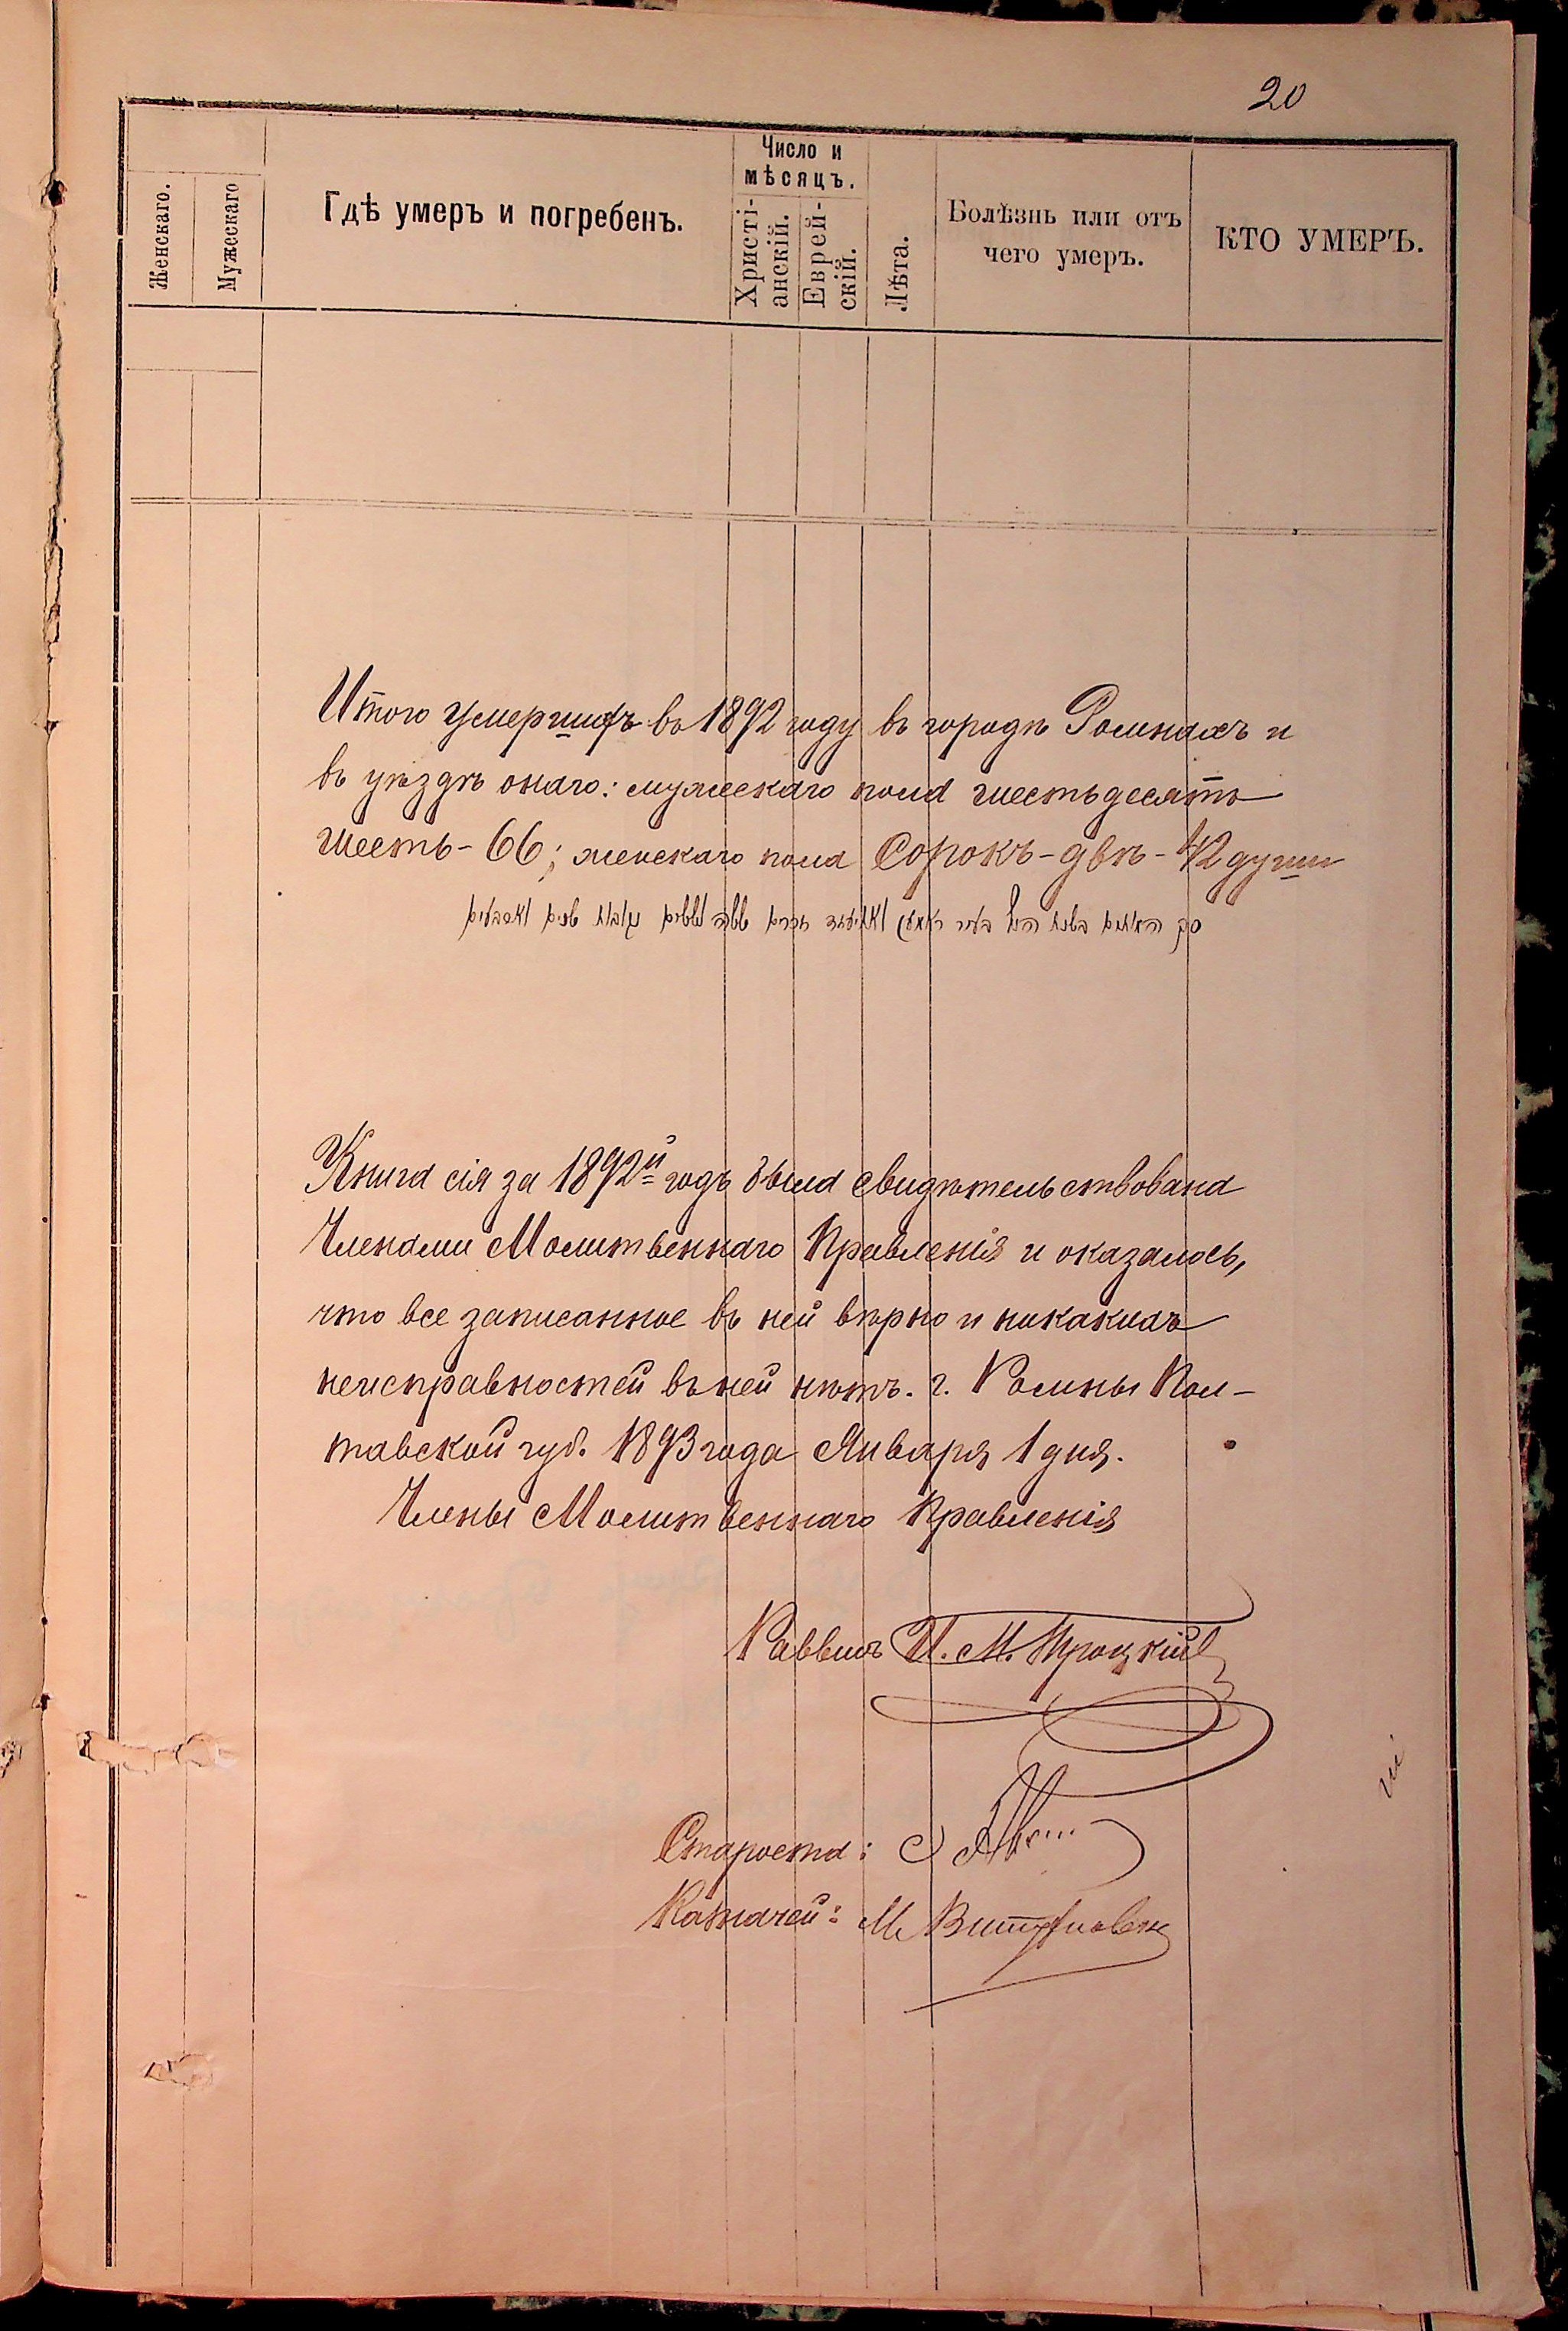 20
Женскаго.
Мужескаго
Гдѣ умеръ и погребенъ.
Число и
мѣсяцъ.
Христі-
анскій.
Еврей-
скій.
Лѣта.
Болѣзнь или отъ
чего умеръ.
КТО УМЕРЪ.
Итого умершихъ въ 1892 году въ городѣ Ромнахъ и
въ уѣздѣ онаго: мужескаго пола шестьдесятъ
шесть - 66; женскаго пола Сорокъ - двѣ - 42 души
סך המתים בשנה הזו בעיר ראמען זכרים ששה וששים נקבות שנים וארבעים
Книга сія за 1892й годъ была свидѣтельствована
Членами Молитвеннаго Правленія и оказалось,
что все записанное въ ней вѣрно и никакихъ
неисправностей въ ней нѣтъ. г. Ромны Пол-
тавской губ. 1893 года Января 1 дня.
Члены Молитвеннаго Правленія
Раввинъ И. М. Троцкій
Староста:
Казначей: М